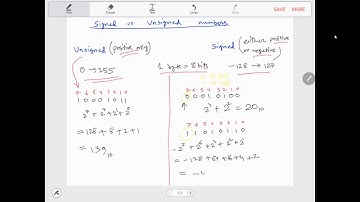 Signed vs Unsigned numbers
Unsigned (positive only)
Signed (either positive or negative)
0 → 255
1 byte = 8 bits
-128 → 127
7 6 5 4 3 2 1 0
1 0 0 0 1 0 1 1
2⁷ + 2³ + 2¹ + 2⁰
= 128 + 8 + 2 + 1
= 139₁₀
7 6 5 4 3 2 1 0
0 0 0 1 0 1 0 0
2⁴ + 2² = 20₁₀
7 6 5 4 3 2 1 0
1 1 0 1 0 1 1 0
-2⁷ + 2⁶ + 2⁴ + 2² + 2¹
= -128 + 64 + 16 + 4 + 2
= -